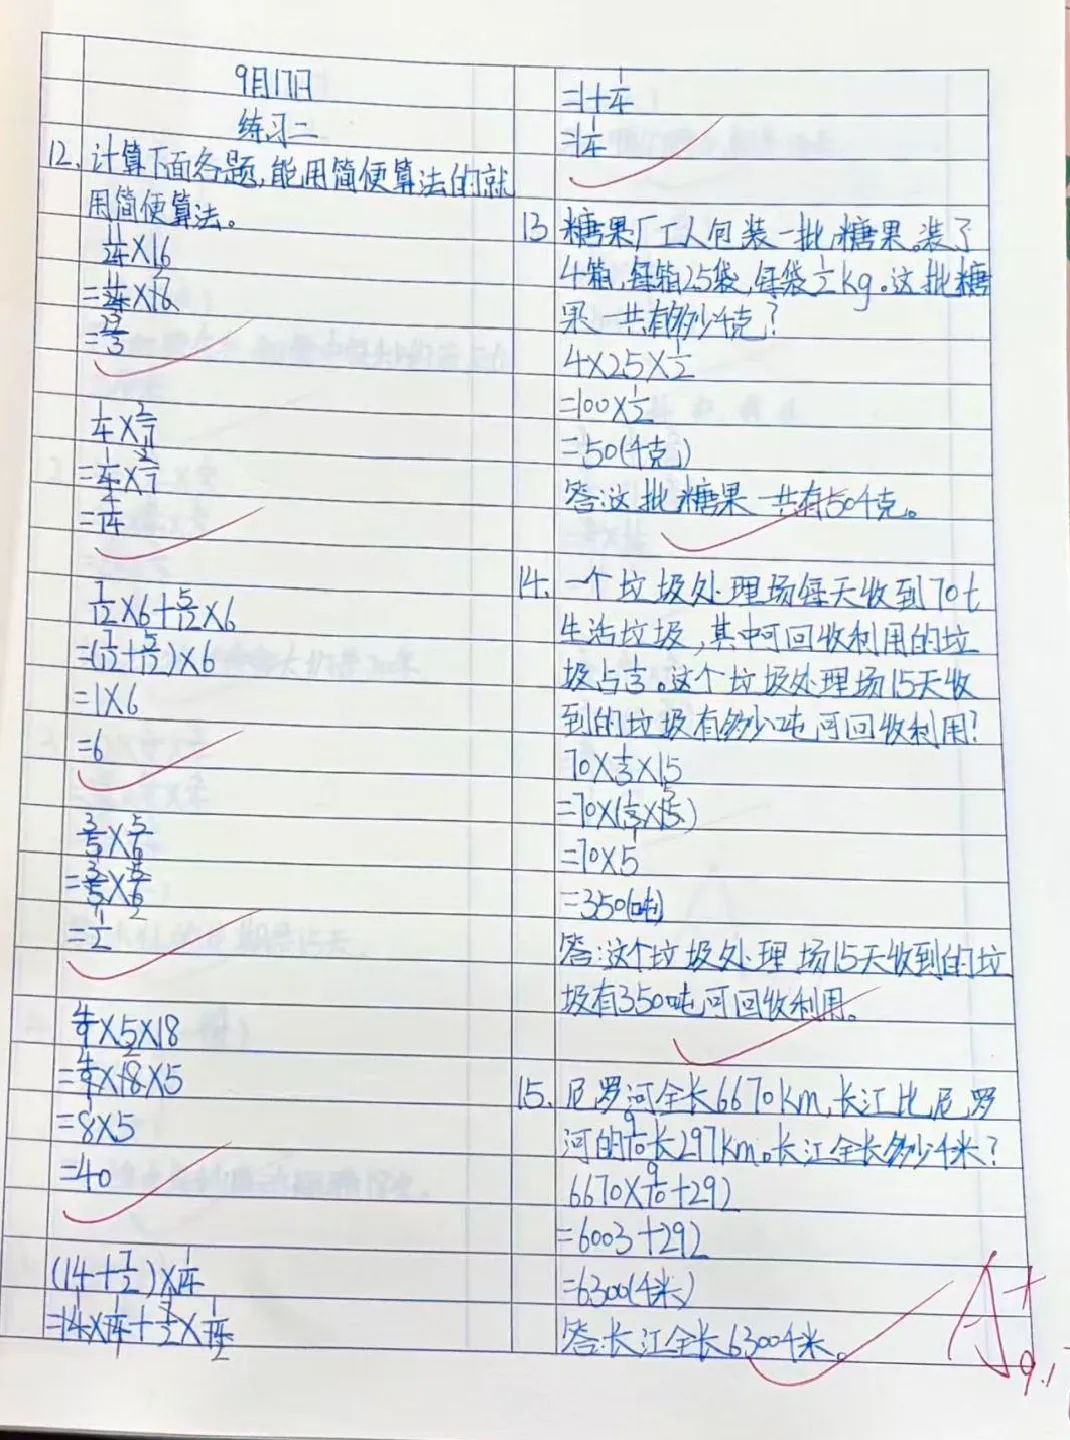 9月17日
练习二
12. 计算下面各题,能用简便算法的就
用简便算法。
11/24×16
=11/24×16
=22/3
1/4×2/7
=1/4×2/7
=1/14
7/12×6+5/12×6
=(7/12+5/12)×6
=1×6
=6
3/5×5/6
=3/5×5/6
=1/2
4/9×5×18
=4/9×18×5
=8×5
=40
(14+7/2)×1/14
=14×1/14+7/2×1/14
=1+1/4
=1 1/4
13 糖果厂工人包装一批糖果。装了
4箱,每箱25袋,每袋1/2kg。这批糖
果一共有多少千克?
4×25×1/2
=100×1/2
=50(千克)
答:这批糖果一共有50千克。
14. 一个垃圾处理场每天收到70t
生活垃圾,其中可回收利用的垃
圾占1/3。这个垃圾处理场15天收
到的垃圾有多少吨可回收利用?
70×1/3×15
=70×(1/3×15)
=70×5
=350(吨)
答:这个垃圾处理场15天收到的垃
圾有350吨可回收利用。
15. 尼罗河全长6670km,长江比尼罗
河的9/10长297km。长江全长多少千米?
6670×9/10+297
=6003+297
=6300(千米)
答:长江全长6300千米。
A+